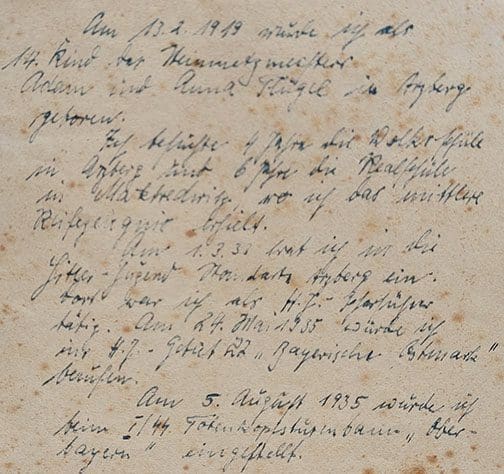 Am 13.2.1919 wurde ich als
14. Kind des Steinmetzmeisters
Adam und Anna Flügel in Arzberg
geboren.
Ich besuchte 4 Jahre die Volksschule
in Arzberg und 6 Jahre die Realschule
in Marktredwitz, wo ich das mittlere
Reifezeugnis erhielt.
Am 1.3.33 trat ich in die
Hitler-Jugend Standort Arzberg ein.
Dort war ich als H.J.-Scharführer
tätig. Am 24. Mai 1935 wurde ich
ins H.J.-Gebiet 22 „Bayerische Ostmark"
berufen.
Am 5. August 1935 wurde ich
beim I/SS Totenkopfsturmbann „Ober-
bayern" eingestellt.